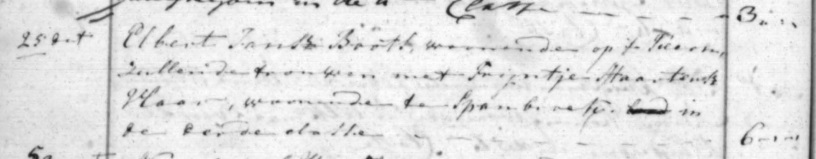 in de 4 Classe - - - - 3 „ „
25 dt Elbert Jansz Booth, woonende op 't
zullende trouwen met Trijntje Maartensz
Vlaar, woonende te Spanbroek. in
de derde classe - - - 6 „ „